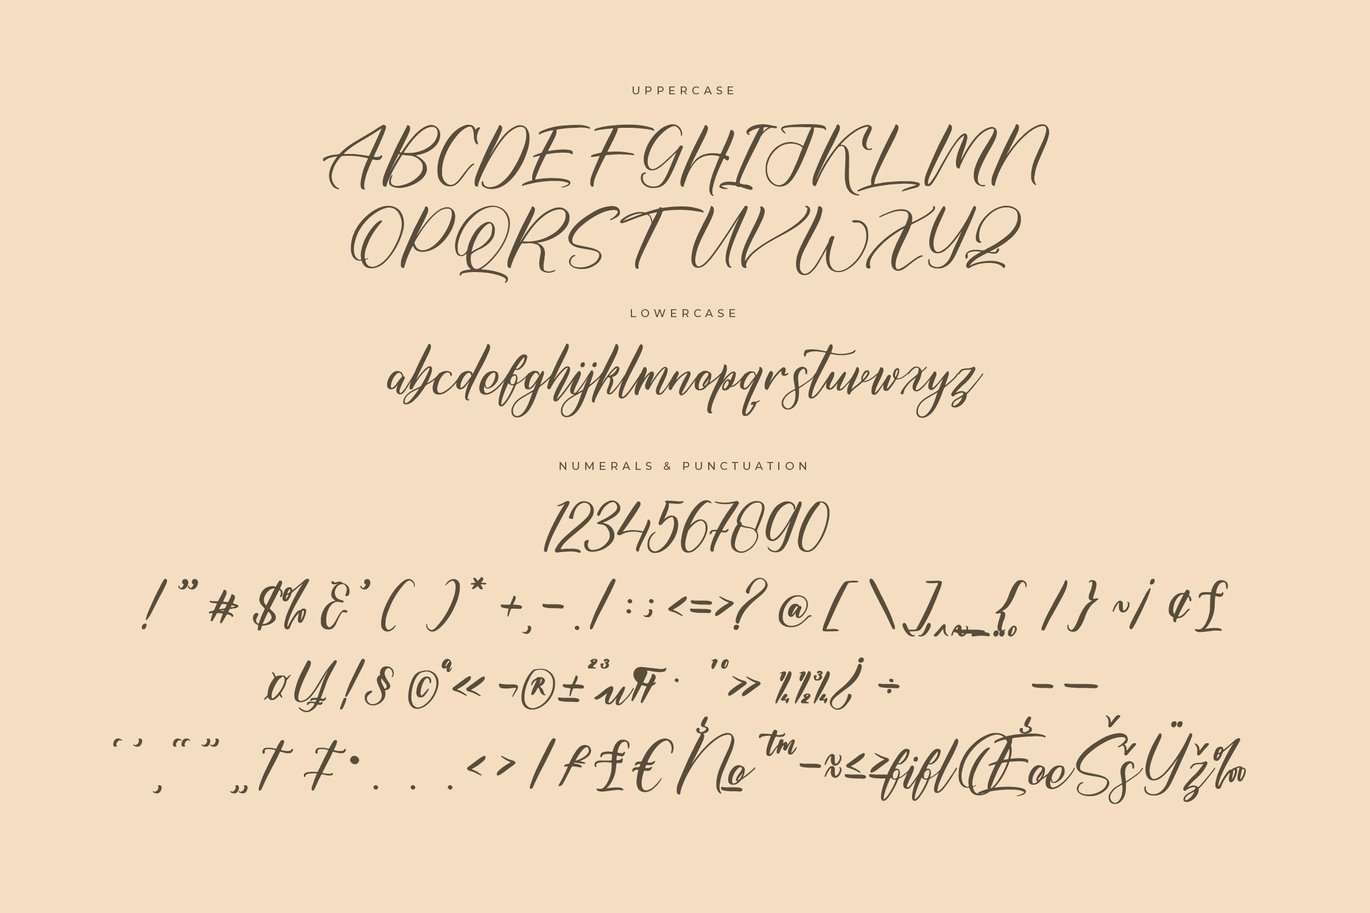 UPPERCASE
ABCDEFGHIJKLMN
OPQRSTUVWXYZ
LOWERCASE
abcdefghijklmnopqrstuvwxyz
NUMERALS & PUNCTUATION
1234567890
! " # $ % & ' ( ) * + , - . / : ; < = > ? @ [ \ ] { | } ~ ¡ ¢ £
¤ ¥ ¦ § © ª « ¬ ® ± ² ³ µ ¶ · ¹ º » ¼ ½ ¾ ¿ ÷ – —
‘ ’ ‚ “ ” „ † ‡ • . . . ‹ › ⁄ ƒ ₤ € № ™ − ≈ ≤ ≥ fi fl Œ œ Š š Ÿ ž ‰